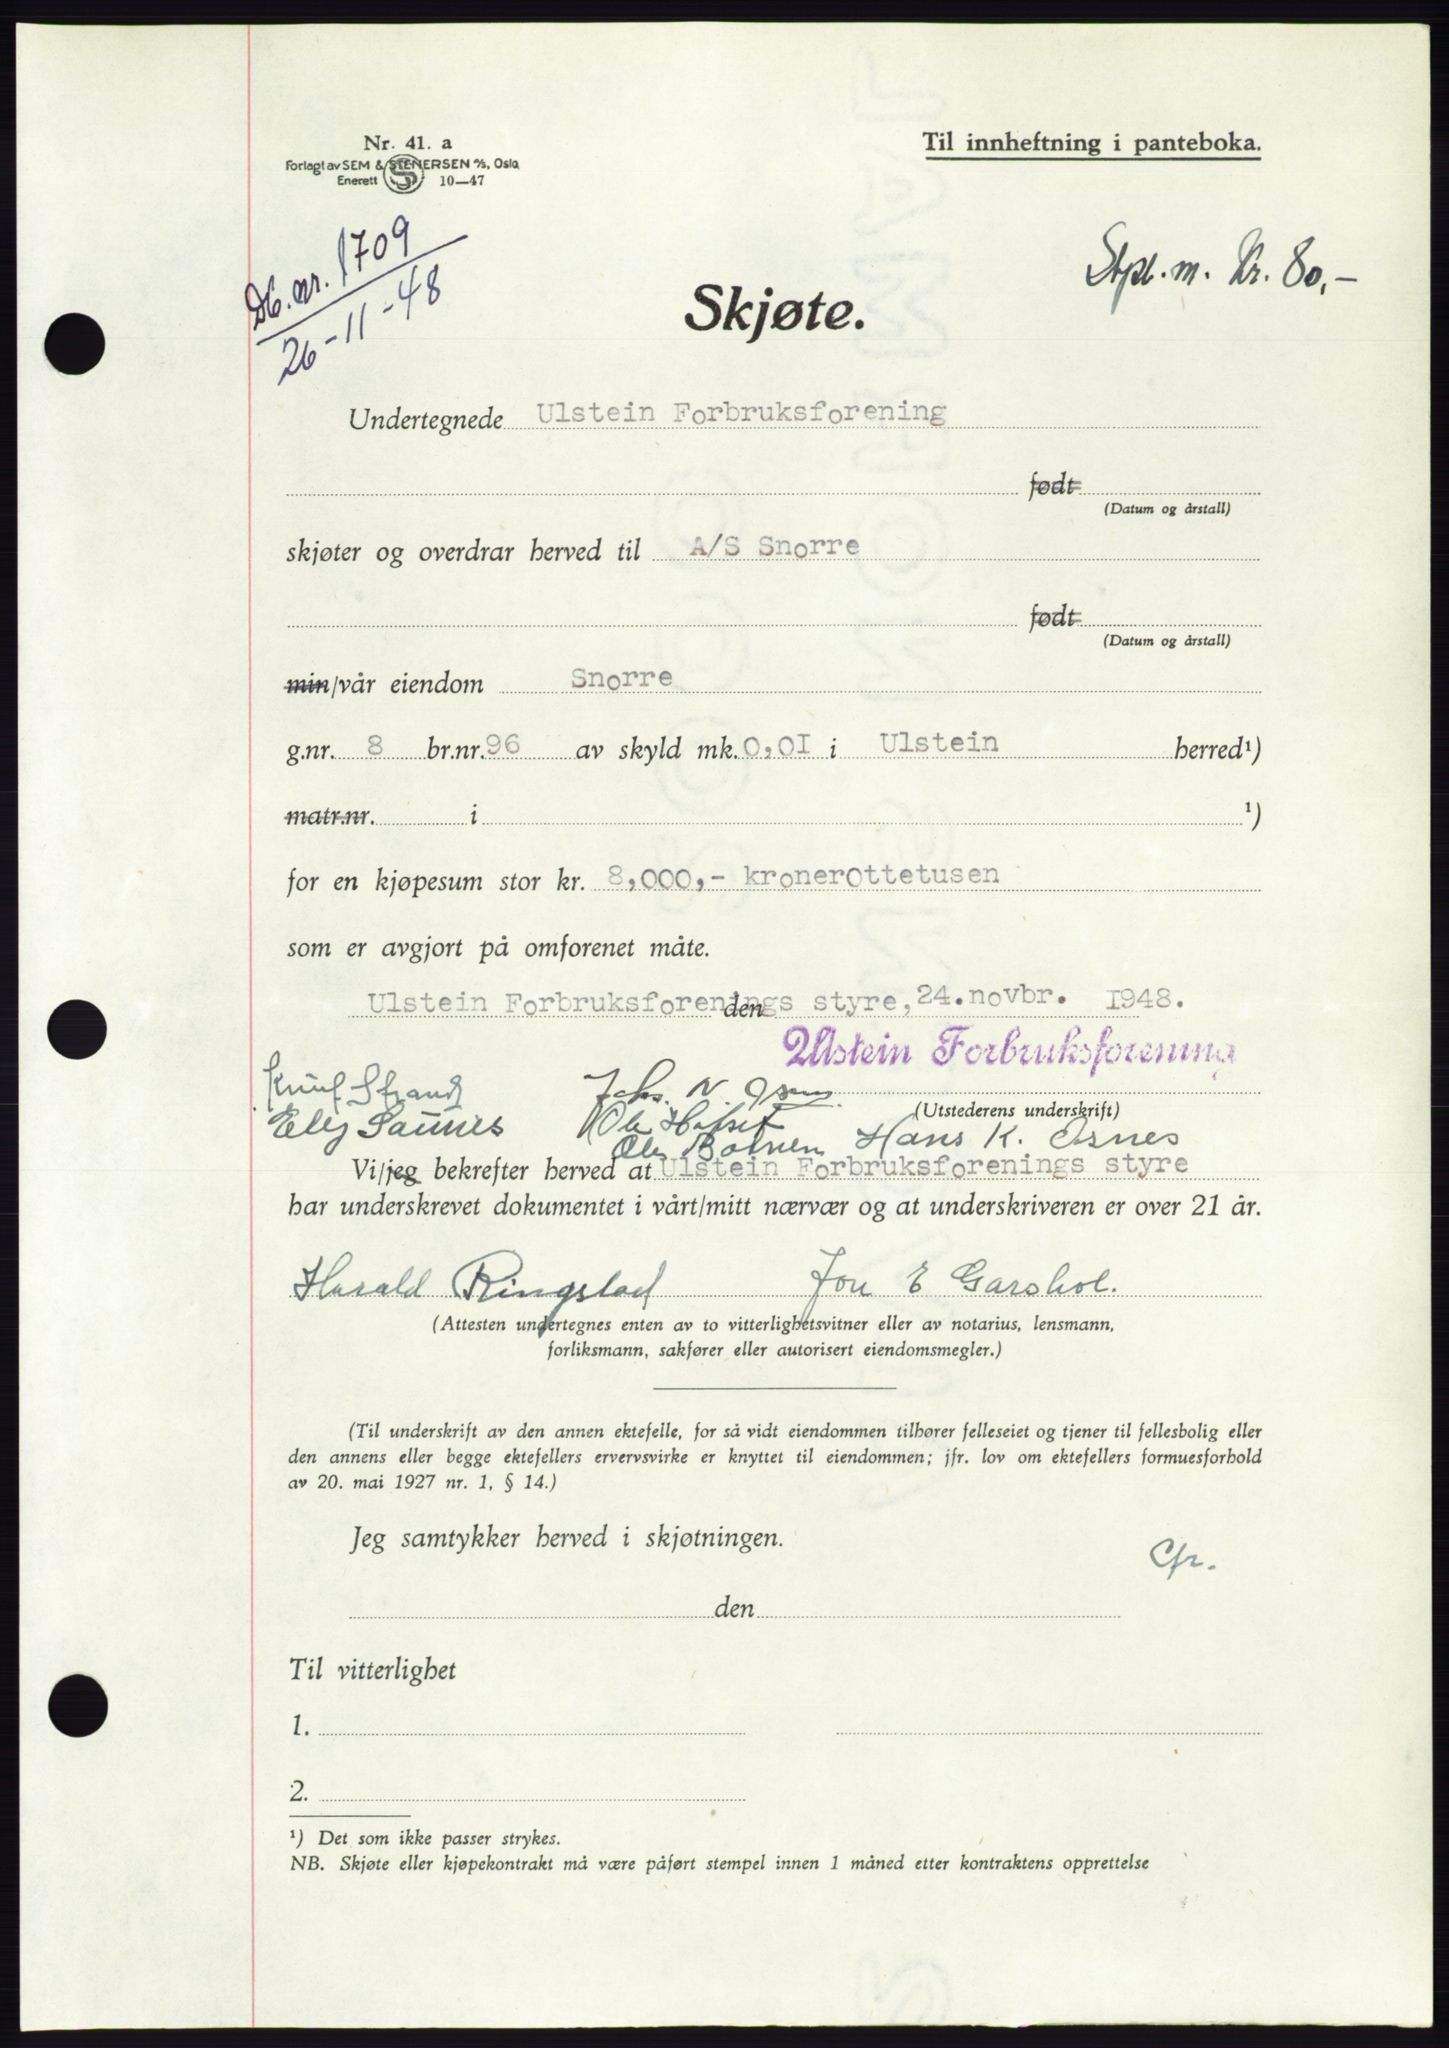 Nr. 41. a
Forlagt av SEM & STENERSEN A/S, Oslo
Enerett 10—47
Til innheftning i panteboka.
Db. nr. 1709
26-11-48
Stpl. m. Kr. 80,-
Skjøte.
Undertegnede Ulstein Forbruksforening
født
(Datum og årstall)
skjøter og overdrar herved til A/S Snorre
født
(Datum og årstall)
min/vår eiendom Snorre
g.nr. 8 br.nr. 96 av skyld mk. 0,01 i Ulstein herred¹)
matr.nr. i ¹)
for en kjøpesum stor kr. 8,000,- kronerottetusen
som er avgjort på omforenet måte.
Ulstein Forbruksforenings styre, den 24. novbr. 1948.
Ulstein Forbruksforening
Knut Strand Johs. N.
(Utstederens underskrift)
Ole Hafset
Hans K. Osnes
Vi/jeg bekrefter herved at Ulstein Forbruksforenings styre
har underskrevet dokumentet i vårt/mitt nærvær og at underskriveren er over 21 år.
Harald Ringstad Jon E Garshol.
(Attesten undertegnes enten av to vitterlighetsvitner eller av notarius, lensmann,
forliksmann, sakfører eller autorisert eiendomsmegler.)
(Til underskrift av den annen ektefelle, for så vidt eiendommen tilhører felleseiet og tjener til fellesbolig eller
den annens eller begge ektefellers ervervsvirke er knyttet til eiendommen; jfr. lov om ektefellers formuesforhold
av 20. mai 1927 nr. 1, § 14.)
Jeg samtykker herved i skjøtningen.
Cfr.
den
Til vitterlighet
1.
2.
¹) Det som ikke passer strykes.
NB. Skjøte eller kjøpekontrakt må være påført stempel innen 1 måned etter kontraktens opprettelse